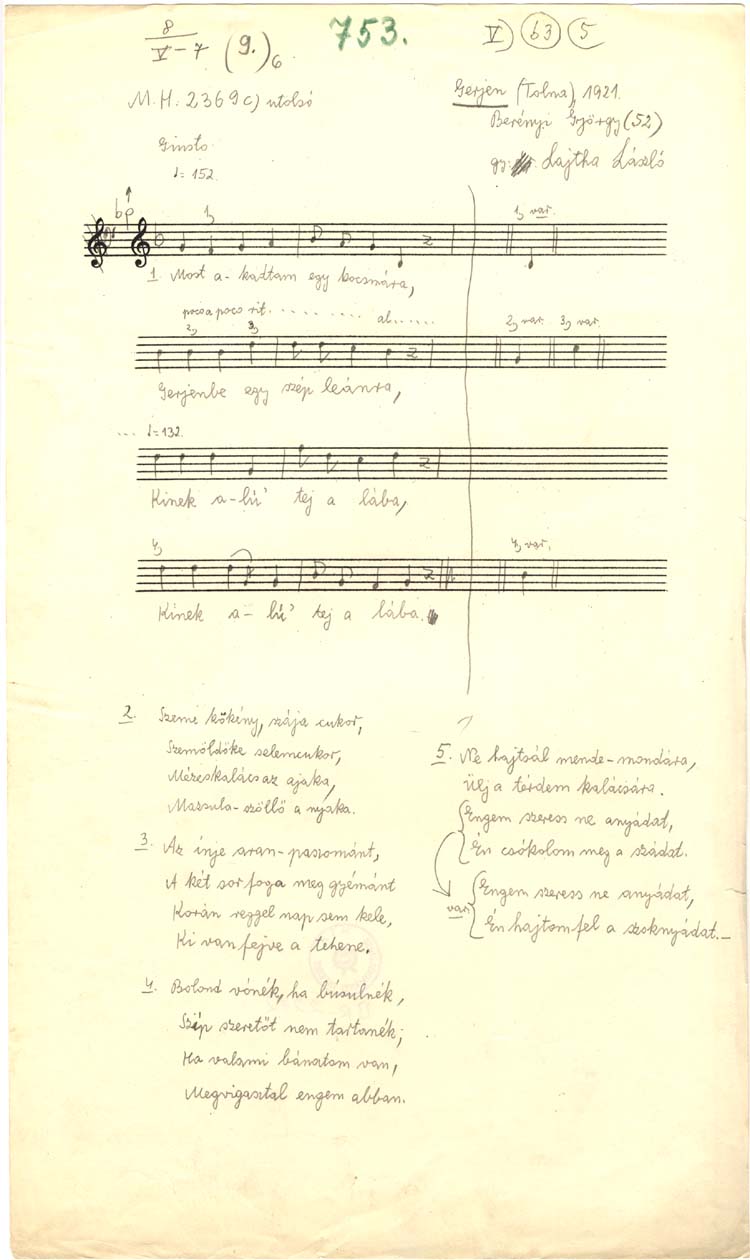 8
V-7 (9.)6
753.
V) b3 5
M. H. 2369 c) utolsó
Gerjen (Tolna), 1921.
Berényi György (52)
gy. Lajtha László
Giusto
♩= 152
1, 1, var.
1. Most a- kadtam egy kocsmára,
poco a poco rit. . . . . . . . . . . . . . al. . . . . .
2, 3, 2, var. 3, var.
Gerjenbe egy szép leánra,
... ♩= 132.
Kinek a-lú' tej a lába,
4, 4, var.
Kinek a- lú' tej a lába.
2. Szeme kökény, szája cukor,
Szemöldöke selemcukor,
Mézeskalács az ajaka,
Mazsula-szöllő a nyaka.
3. Az inje aran-paszománt,
A két sor foga meg gyémánt
Korán reggel nap sem kele,
Ki van fejve a tehene.
4. Bolond vónék, ha búsulnék,
Szép szeretőt nem tartanék;
Ha valami bánatom van,
Megvigasztal engem abban.
5. Ne hajtsál mende-mondára,
Ülj a térdem kalácsára.
Engem szeress ne anyádat,
Én csókolom meg a szádat.
var. Engem szeress ne anyádat,
Én hajtom fel a szoknyádat.—